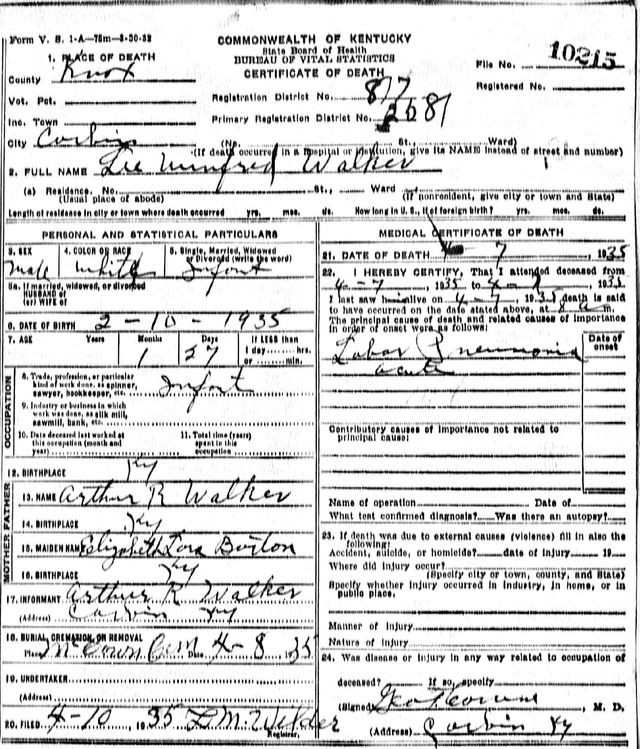 Form V. S. 1-A—75m—8-30-32
COMMONWEALTH OF KENTUCKY
State Board of Health
BUREAU OF VITAL STATISTICS
CERTIFICATE OF DEATH
File No. 10215
Registered No.
1. PLACE OF DEATH
County Knox
Vot. Pct.
Inc. Town
City Corbin
Registration District No. 877
Primary Registration District No. 2681
(No. St., Ward)
(If death occurred in a hospital or institution, give its NAME instead of street and number)
2. FULL NAME Lee Winfred Walker
(a) Residence. No. St., Ward
(Usual place of abode) (If nonresident, give city or town and State)
Length of residence in city or town where death occurred yrs. mos. ds. How long in U. S., if of foreign birth? yrs. mos. ds.
PERSONAL AND STATISTICAL PARTICULARS
3. SEX Male
4. COLOR OR RACE White
5. Single, Married, Widowed or Divorced (write the word) Infant
5a. If married, widowed, or divorced
HUSBAND of
(or) WIFE of
6. DATE OF BIRTH 2-10-1935
7. AGE Years Months Days If LESS than
1 27 1 day hrs.
or min.
OCCUPATION
8. Trade, profession, or particular
kind of work done, as spinner,
sawyer, bookkeeper, etc. Infant
9. Industry or business in which
work was done, as silk mill,
sawmill, bank, etc.
10. Date deceased last worked at
this occupation (month and
year)
11. Total time (years)
spent in this
occupation
12. BIRTHPLACE Ky
MOTHER FATHER
13. NAME Arthur R Walker
14. BIRTHPLACE Ky
15. MAIDEN NAME Elizabeth Lora Barton
16. BIRTHPLACE Ky
17. INFORMANT Arthur R Walker
(Address) Corbin Ky
18. BURIAL, CREMATION, OR REMOVAL
Place Cem Date 4-8 1935
19. UNDERTAKER
(Address)
20. FILED 4-10 1935 Wilder
Registrar.
MEDICAL CERTIFICATE OF DEATH
21. DATE OF DEATH 4-7 1935
22. I HEREBY CERTIFY, That I attended deceased from
4-7, 1935 to 4-7, 1935
I last saw him alive on 4-7, 1935 death is said
to have occurred on the date stated above, at 8 a m.
The principal cause of death and related causes of importance
in order of onset were as follows:
Date of
onset
Lobar Pneumonia
acute
Contributory causes of importance not related to
principal cause:
Name of operation Date of
What test confirmed diagnosis? Was there an autopsy?
23. If death was due to external causes (violence) fill in also the
following:
Accident, suicide, or homicide? date of injury 19
Where did injury occur?
(Specify city or town, county, and State)
Specify whether injury occurred in industry, in home, or in
public place.
Manner of injury
Nature of injury
24. Was disease or injury in any way related to occupation of
deceased? If so, specify
(Signed) M. D.
(Address) Corbin Ky